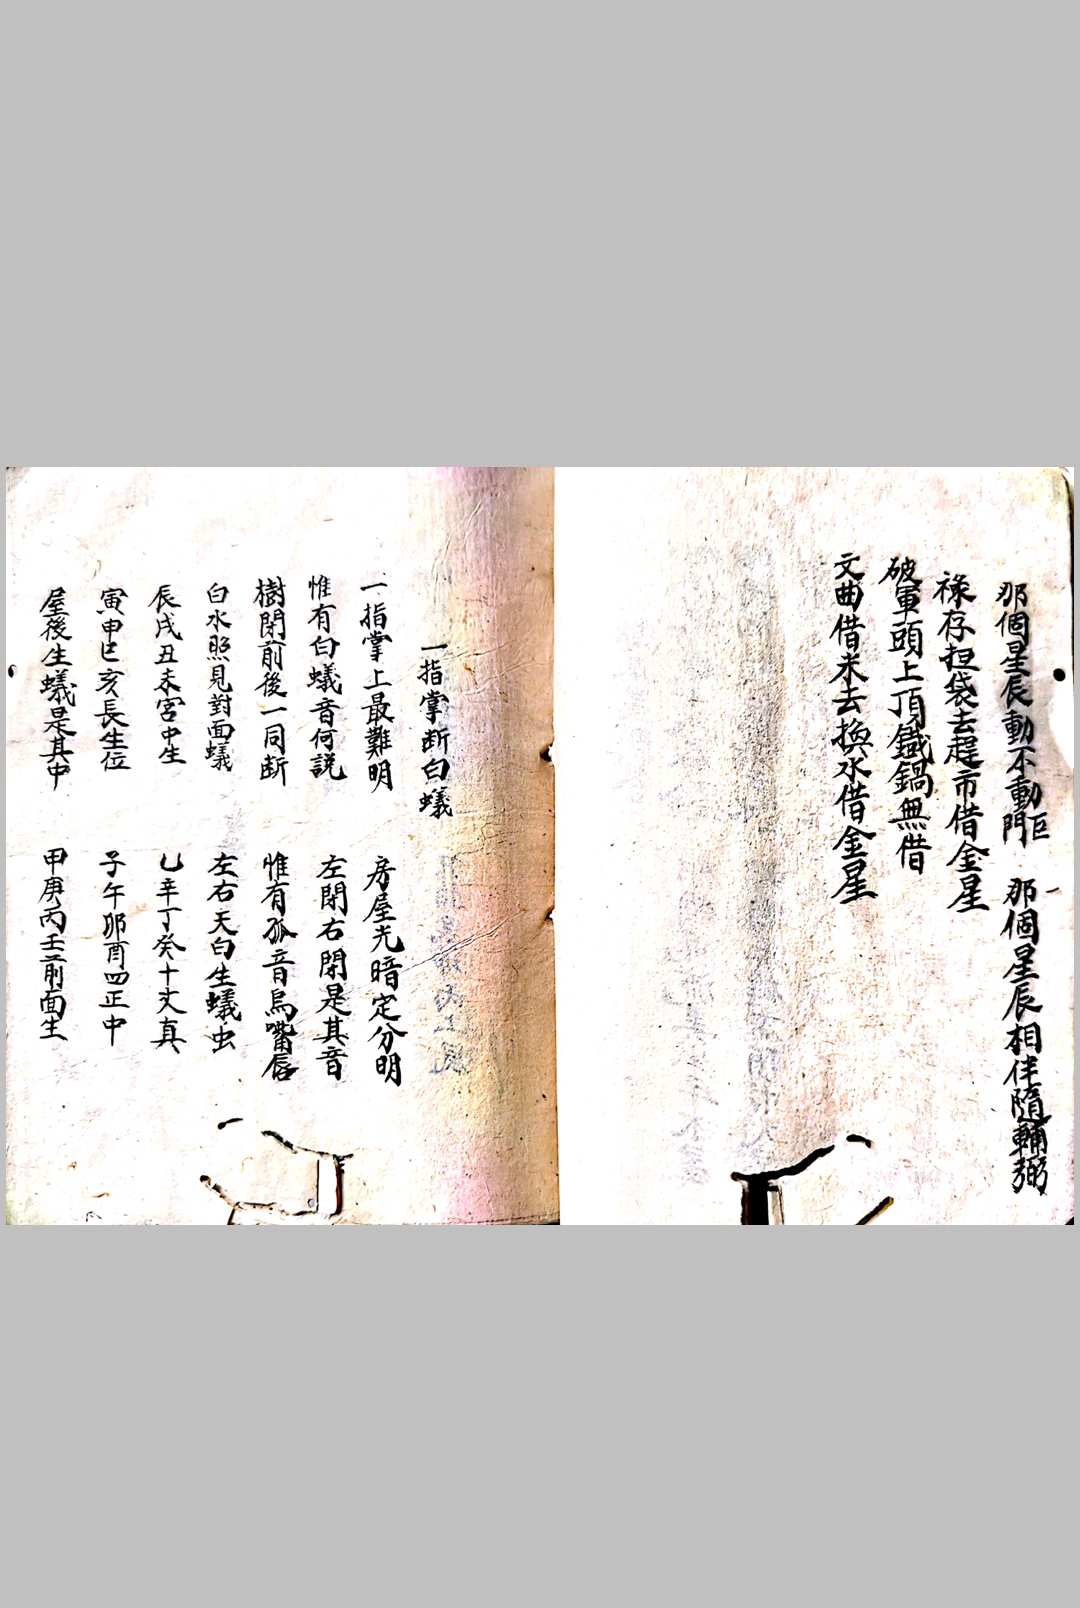 那個星辰動不動門巨　那個星辰相伴隨輔弼
祿存担袋去趕市借金星
破軍頭上頂鐵鍋無借
文曲借米去換水借金星
一指掌断白蟻
一指掌上最難明　房屋光暗定分明
惟有白蟻音何説　左閉右閉是其音
樹閉前後一同断　惟有孤音鳥嘴唇
白水照見對面蟻　左右天白生蟻虫
辰戌丑未宮中生　乚辛丁癸十丈真
寅申巳亥長生位　子午卯酉四正中
屋後生蟻是其中　甲庚丙壬前面生